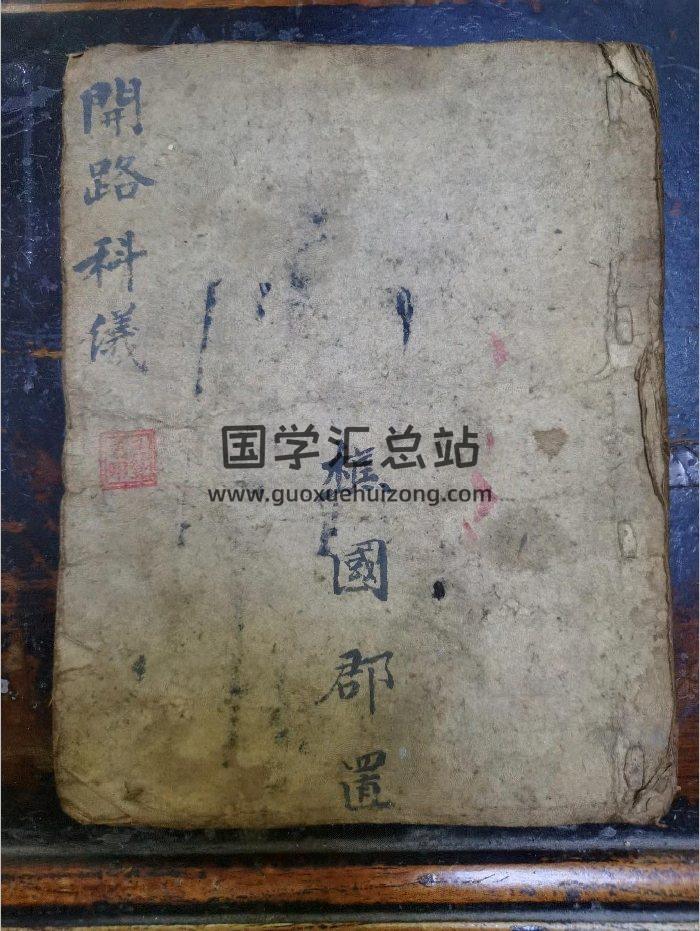 開路科儀
國郡置
国学汇总站
www.guoxuehuizong.com